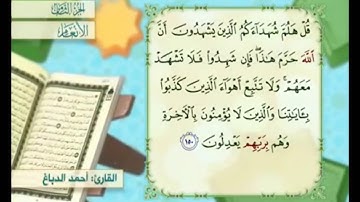 الجزء الثامن
الأنعام
قُلْ هَلُمَّ شُهَدَآءَكُمُ ٱلَّذِينَ يَشْهَدُونَ أَنَّ
ٱللَّهَ حَرَّمَ هَٰذَا ۖ فَإِن شَهِدُوا۟ فَلَا تَشْهَدْ
مَعَهُمْ ۚ وَلَا تَتَّبِعْ أَهْوَآءَ ٱلَّذِينَ كَذَّبُوا۟
بِـَٔايَٰتِنَا وَٱلَّذِينَ لَا يُؤْمِنُونَ بِٱلْـَٔاخِرَةِ
وَهُم بِرَبِّهِمْ يَعْدِلُونَ ١٥٠
القارئ: أحمد الدباغ